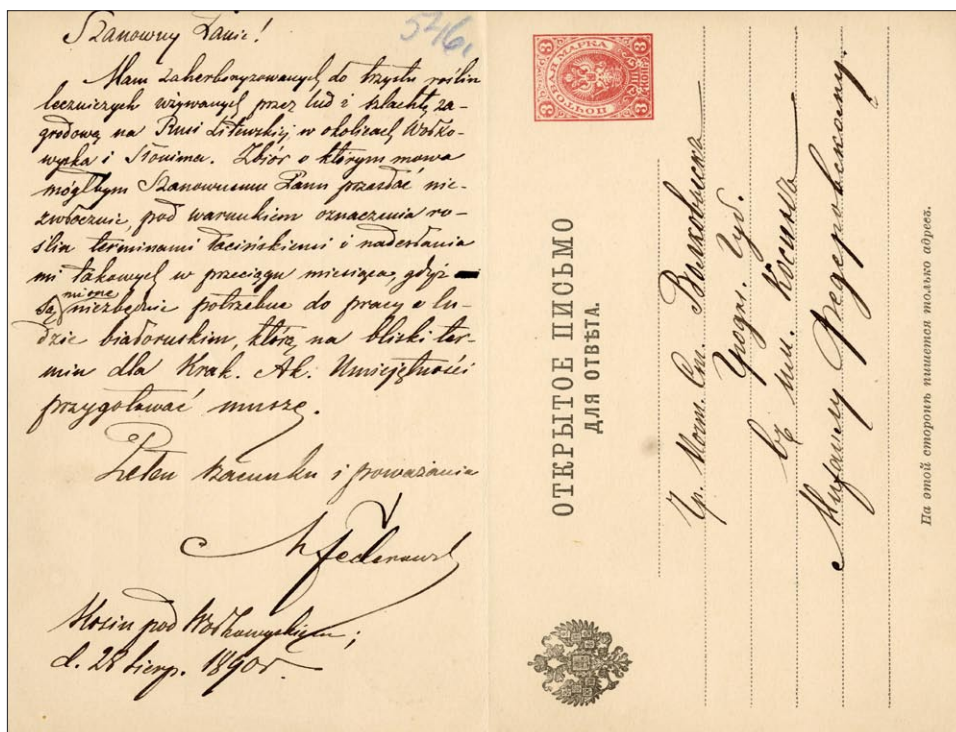 546.
Szanowny Panie!
Mam zaherboryzowanych do trzystu roślin
leczniczych używanych przez lud i szlachtę za-
grodową na Rusi Litewskiej, w okolicach Wołko-
wyska i Słonima. Zbiór o którym mowa
mógłbym Szanownemu Panu przesłać nie-
zwłocznie, pod warunkiem oznaczenia ro-
ślin terminami łacińskiemi i nadesłania
mi takowych w przeciągu miesiąca, gdyż
są mnie niezbędnie potrzebne do pracy o lu-
dzie białoruskim, którą na bliski ter-
min dla Krak. Ak. Umiejętności
przygotować muszę.
Pełen szacunku i poważania
MFederowski
Kosin pod Wołkowyskiem;
d. 28 sierp. 1890 r.
ПОЧТОВАЯ МАРКА
3
3
3
3
ОТКРЫТОЕ ПИСЬМО
ДЛЯ ОТВѢТА.
Чр. Почт. Ст. Волковыска
Гродн. Губ.
въ им. Косина
Михаилу Федеровскому.
На этой сторонѣ пишется только адресъ.